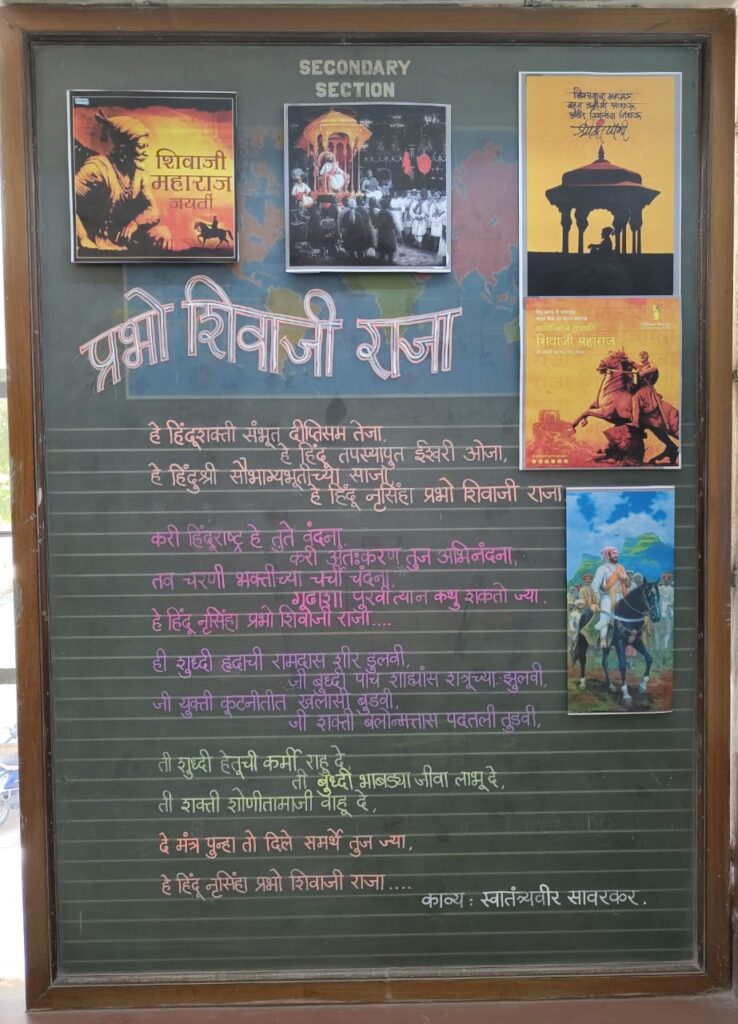 SECONDARY
SECTION
शिवाजी
महाराज
जयती
निश्चयाचा महामेरू
बहुत जनांसी आधारू
श्रीमंत योगी
शिवाजी महाराज
प्रभो शिवाजी राजा
हे हिंदूशक्ती संभूत दीप्तिसम तेजा,
हे हिंदू तपस्यापुत ईश्वरी ओजा,
हे हिंदुश्री सौभाग्यभूतीच्या साजा,
हे हिंदू नृसिंहा प्रभो शिवाजी राजा
करी हिंदूराष्ट्र हे तुते वंदना,
करी अंतःकरण तुज अभिनंदना,
तव चरणी भक्तीच्या चर्ची चंदना,
गूढाशा पुरवी त्यान कथु शकतो ज्या.
हे हिंदू नृसिंहा प्रभो शिवाजी राजा....
ही शुध्दी हृदाची रामदास शीर डुलवी,
जी बुध्दी पाच शाह्यांस शत्रूच्या झुलवी,
जी युक्ती कूटनीतीत खलांसी बुडवी,
जी शक्ती बलोन्मत्तास पदतली तुडवी,
ती शुध्दी हेतूची कर्मी राहू दे,
ती बुध्दी भाबड्या जीवा लाभू दे,
ती शक्ती शोणीतामाजी वाहू दे,
दे मंत्र पुन्हा तो दिले समर्थे तुज ज्या,
हे हिंदू नृसिंहा प्रभो शिवाजी राजा....
काव्य : स्वातंत्र्यवीर सावरकर.